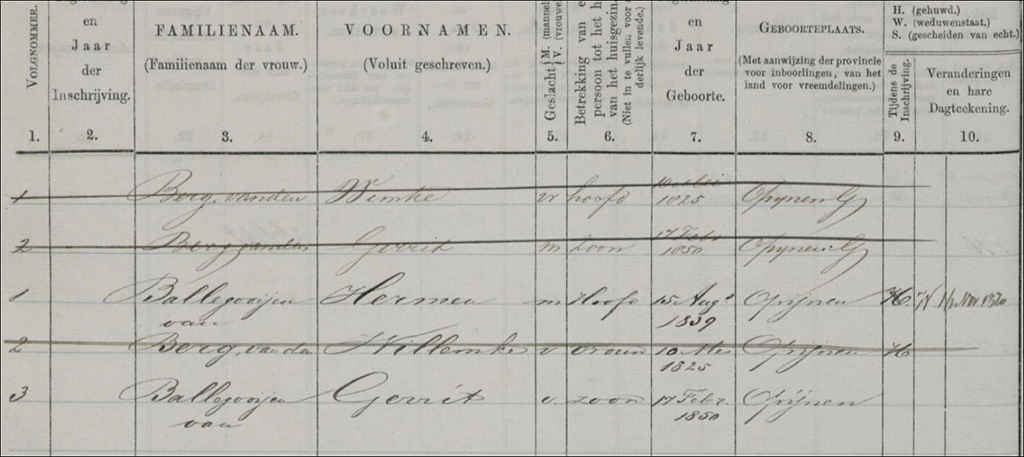 VOLGNOMMER.
en
Jaar
der
Inschrijving.
FAMILIENAAM.
(Familienaam der vrouw.)
VOORNAMEN.
(Voluit geschreven.)
Geslacht
M. (mannel
V. (vrouwe
Betrekking van e
persoon tot het h
van het huisgezin
(Niet in te vullen voor
derlijk levende.)
en
Jaar
der
Geboorte.
GEBOORTEPLAATS.
(Met aanwijzing der provincie
voor inboorlingen, van het
land voor vreemdelingen.)
H. (gehuwd.)
W. (weduwenstaat.)
S. (gescheiden van echt.)
Tijdens de
Inschrijving.
Veranderingen
en hare
Dagteekening.
1. 2. 3. 4. 5. 6. 7. 8. 9. 10.
1 Berg, vanden Wemke vr hoofd 1825 Opynen G
2 Berg vanden Gerrit m Zoon 17 Febr Opynen G
1850
1 Ballegooijen Hermen m Hoofd 15 Aug Opijnen H. W
van 1839
2 Berg, van den Willemke v vrouw 10 Mei Opijnen H
1825
3 Ballegooijen Gerrit v. zoon 17 Febr. Opijnen
van 1850